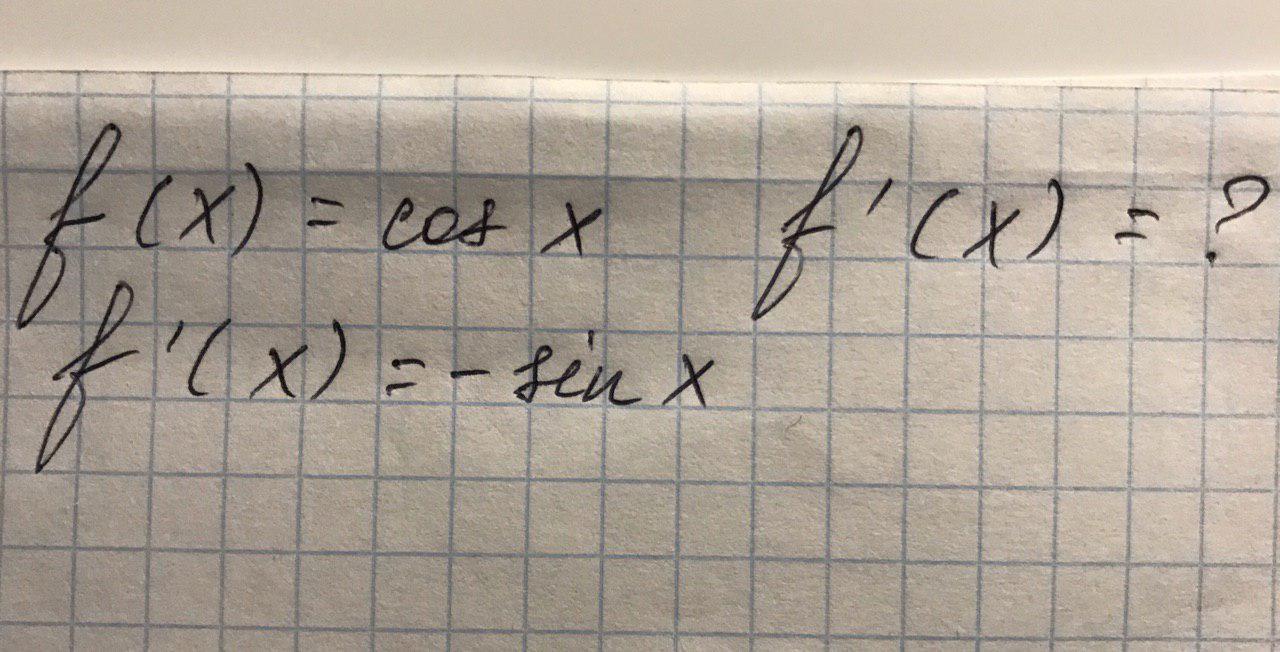 f(x) = cos x f'(x) = ?
f'(x) = - sin x